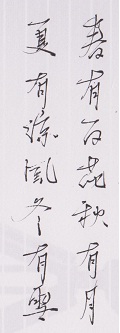 春有百花秋有月
夏有凉风冬有雪